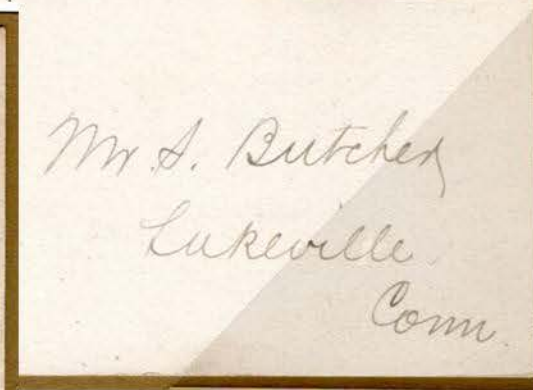 Mr. S. Butcher
Lukeville
Conn.